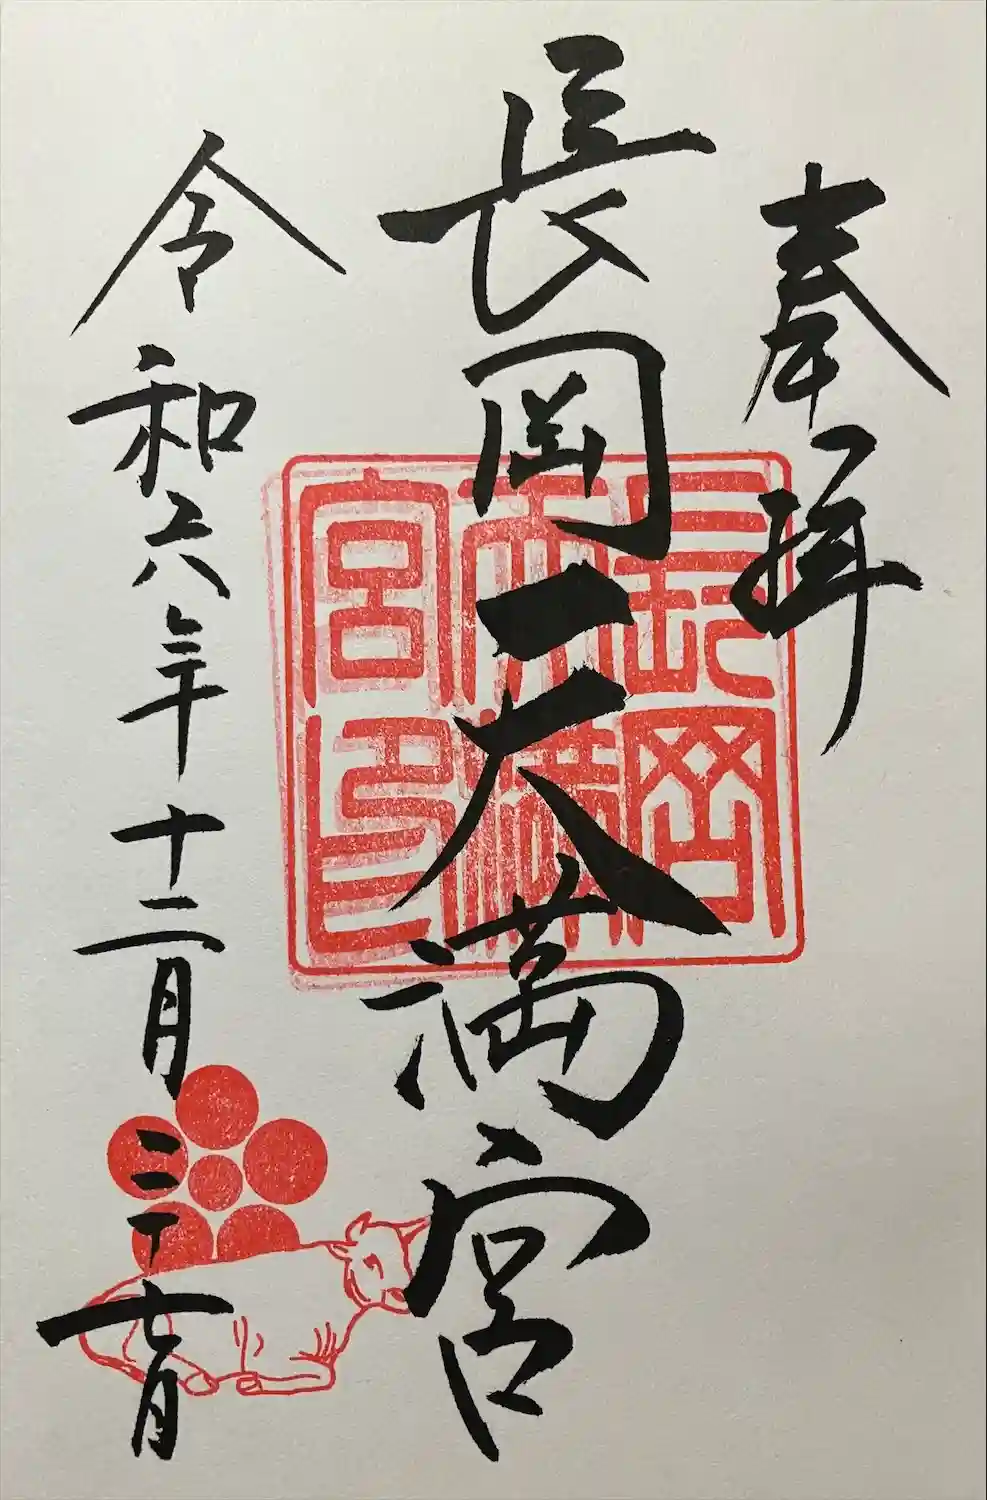 奉拝
長岡天満宮
長岡天満宮印
令和六年十二月二十七日